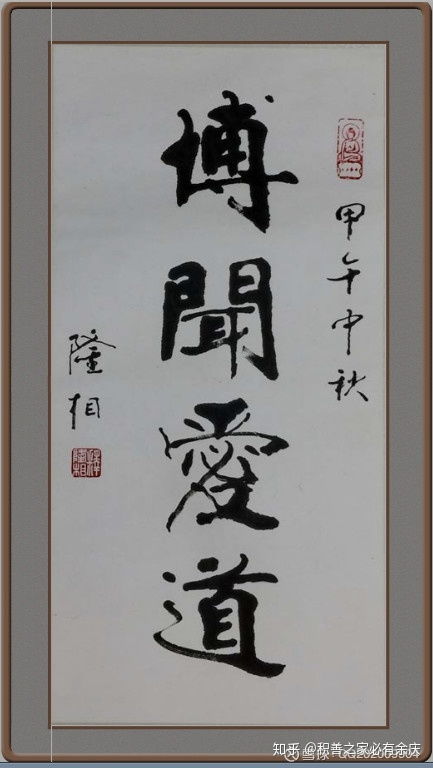 甲午中秋
博聞愛道
隆相
知乎 @积善之家必有余庆